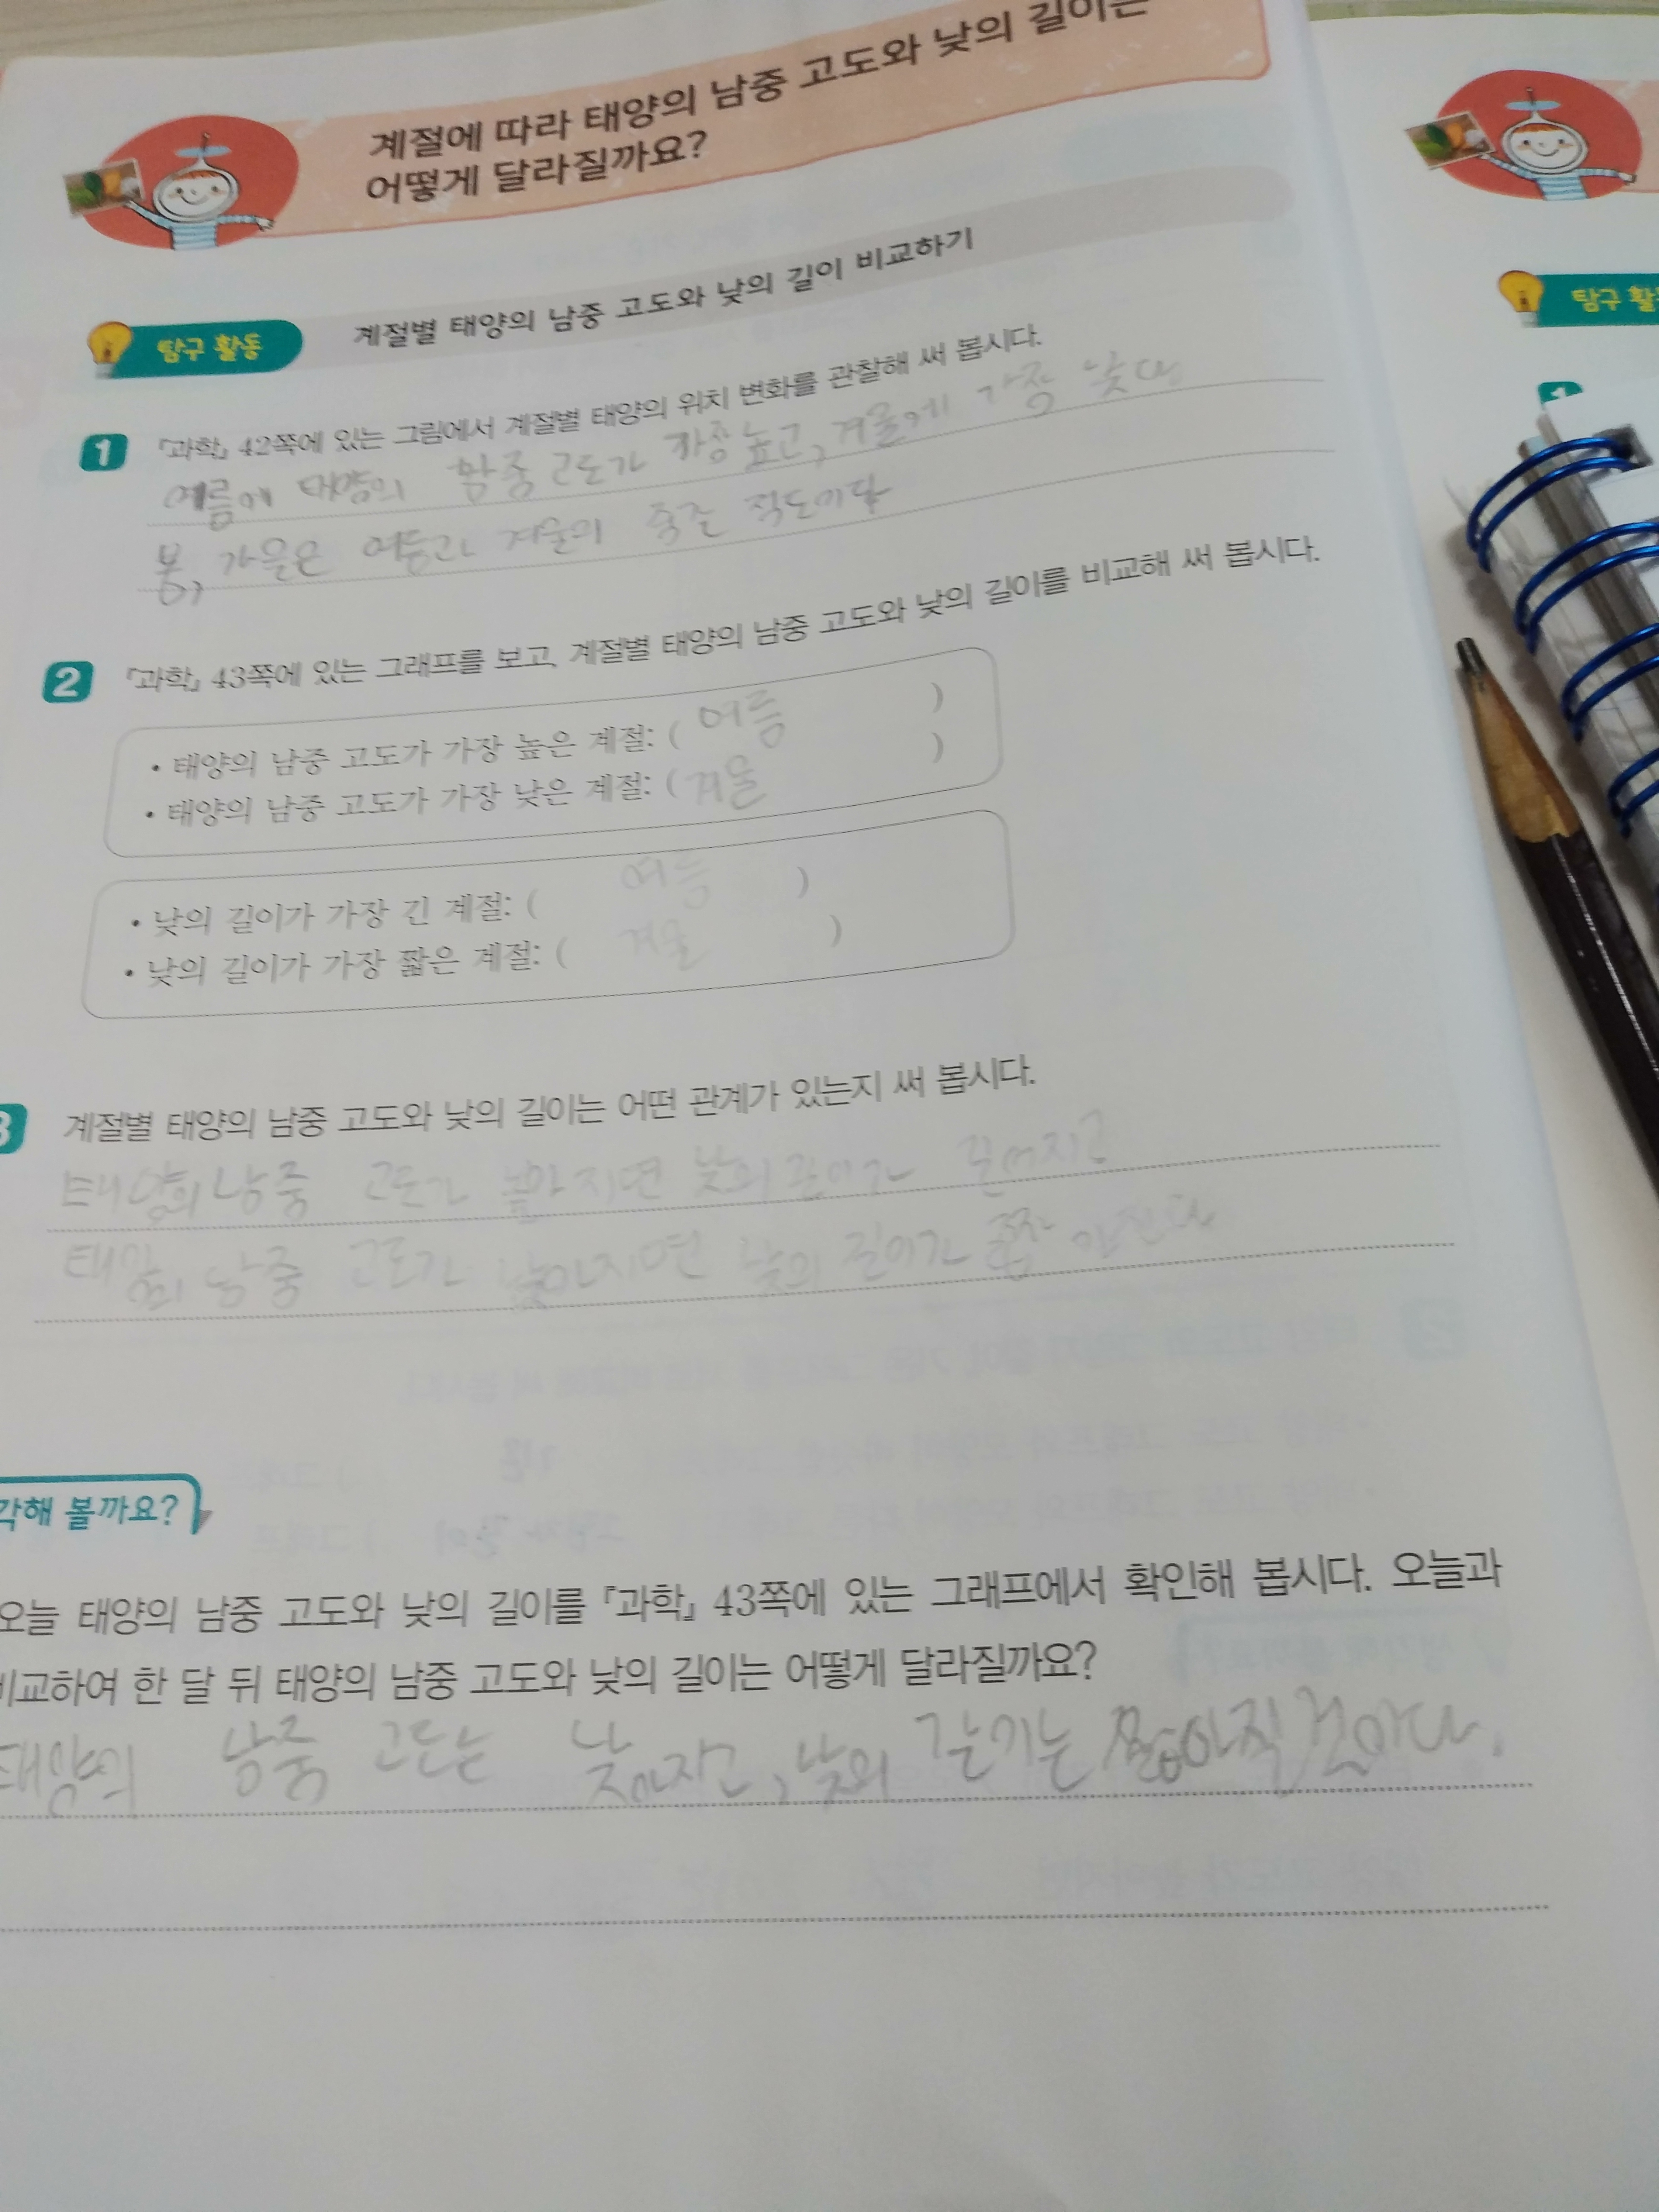 계절에 따라 태양의 남중 고도와 낮의 길이는
어떻게 달라질까요?
탐구 활동
계절별 태양의 남중 고도와 낮의 길이 비교하기
1 『과학』 42쪽에 있는 그림에서 계절별 태양의 위치 변화를 관찰해 써 봅시다.
여름에 태양의 남중 고도가 가장 높고, 겨울에 가장 낮다
봄, 가을은 여름과 겨울의 중간 정도이다
2 『과학』 43쪽에 있는 그래프를 보고, 계절별 태양의 남중 고도와 낮의 길이를 비교해 써 봅시다.
• 태양의 남중 고도가 가장 높은 계절: ( 여름 )
• 태양의 남중 고도가 가장 낮은 계절: ( 겨울 )
• 낮의 길이가 가장 긴 계절: ( 여름 )
• 낮의 길이가 가장 짧은 계절: ( 겨울 )
3 계절별 태양의 남중 고도와 낮의 길이는 어떤 관계가 있는지 써 봅시다.
태양의 남중 고도가 높아지면 낮의 길이가 길어지고
태양의 남중 고도가 낮아지면 낮의 길이가 짧아진다
각해 볼까요?
오늘 태양의 남중 고도와 낮의 길이를 『과학』 43쪽에 있는 그래프에서 확인해 봅시다. 오늘과
비교하여 한 달 뒤 태양의 남중 고도와 낮의 길이는 어떻게 달라질까요?
태양의 남중 고도는 낮아지고, 낮의
탐구 활
1